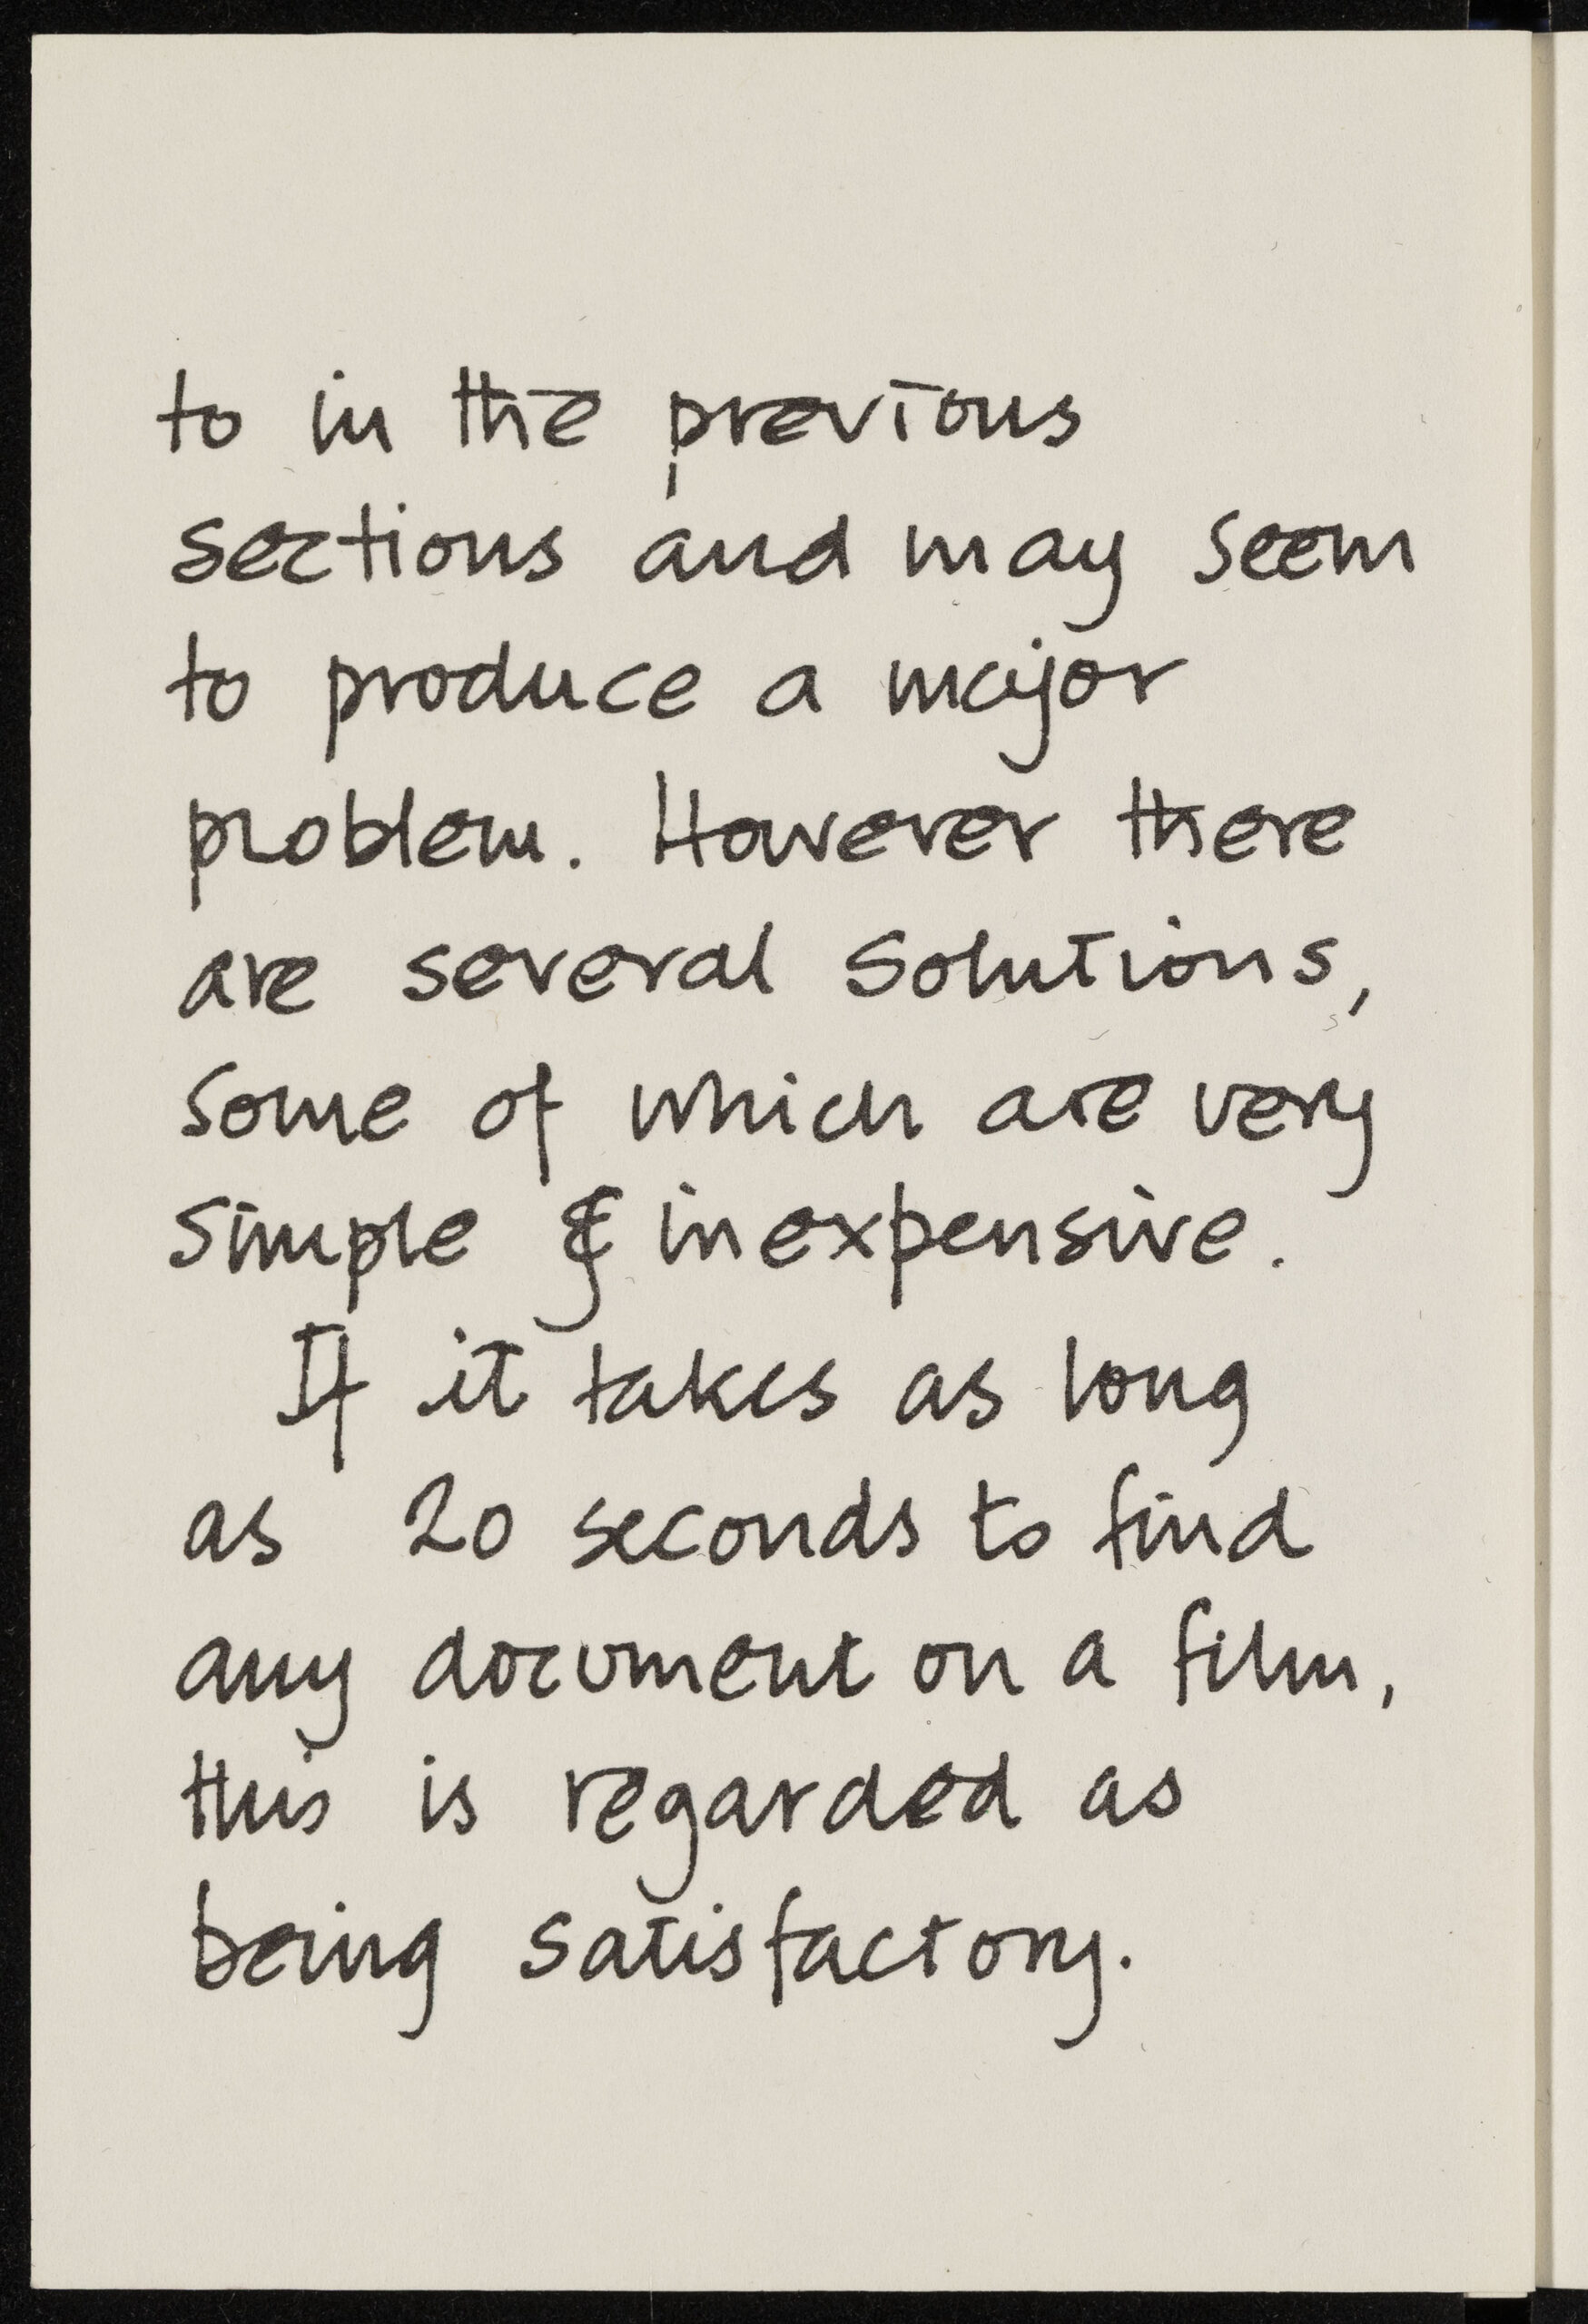 to in the previous
sections and may seem
to produce a major
problem. However there
are several solutions,
some of which are very
simple & inexpensive.
If it takes as long
as 20 seconds to find
any document on a film,
this is regarded as
being satisfactory.